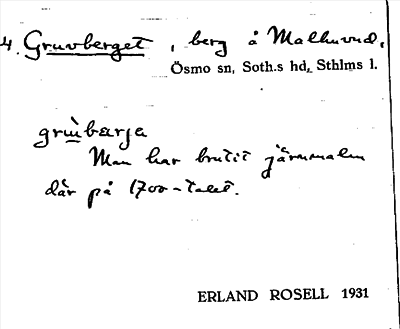 4. Gruvberget, berg å Malhuvud.
Ösmo sn, Soth.s hd, Sthlms l.
grùbærja
Man har brutit järnmalm
där på 1700-talet.
ERLAND ROSELL 1931